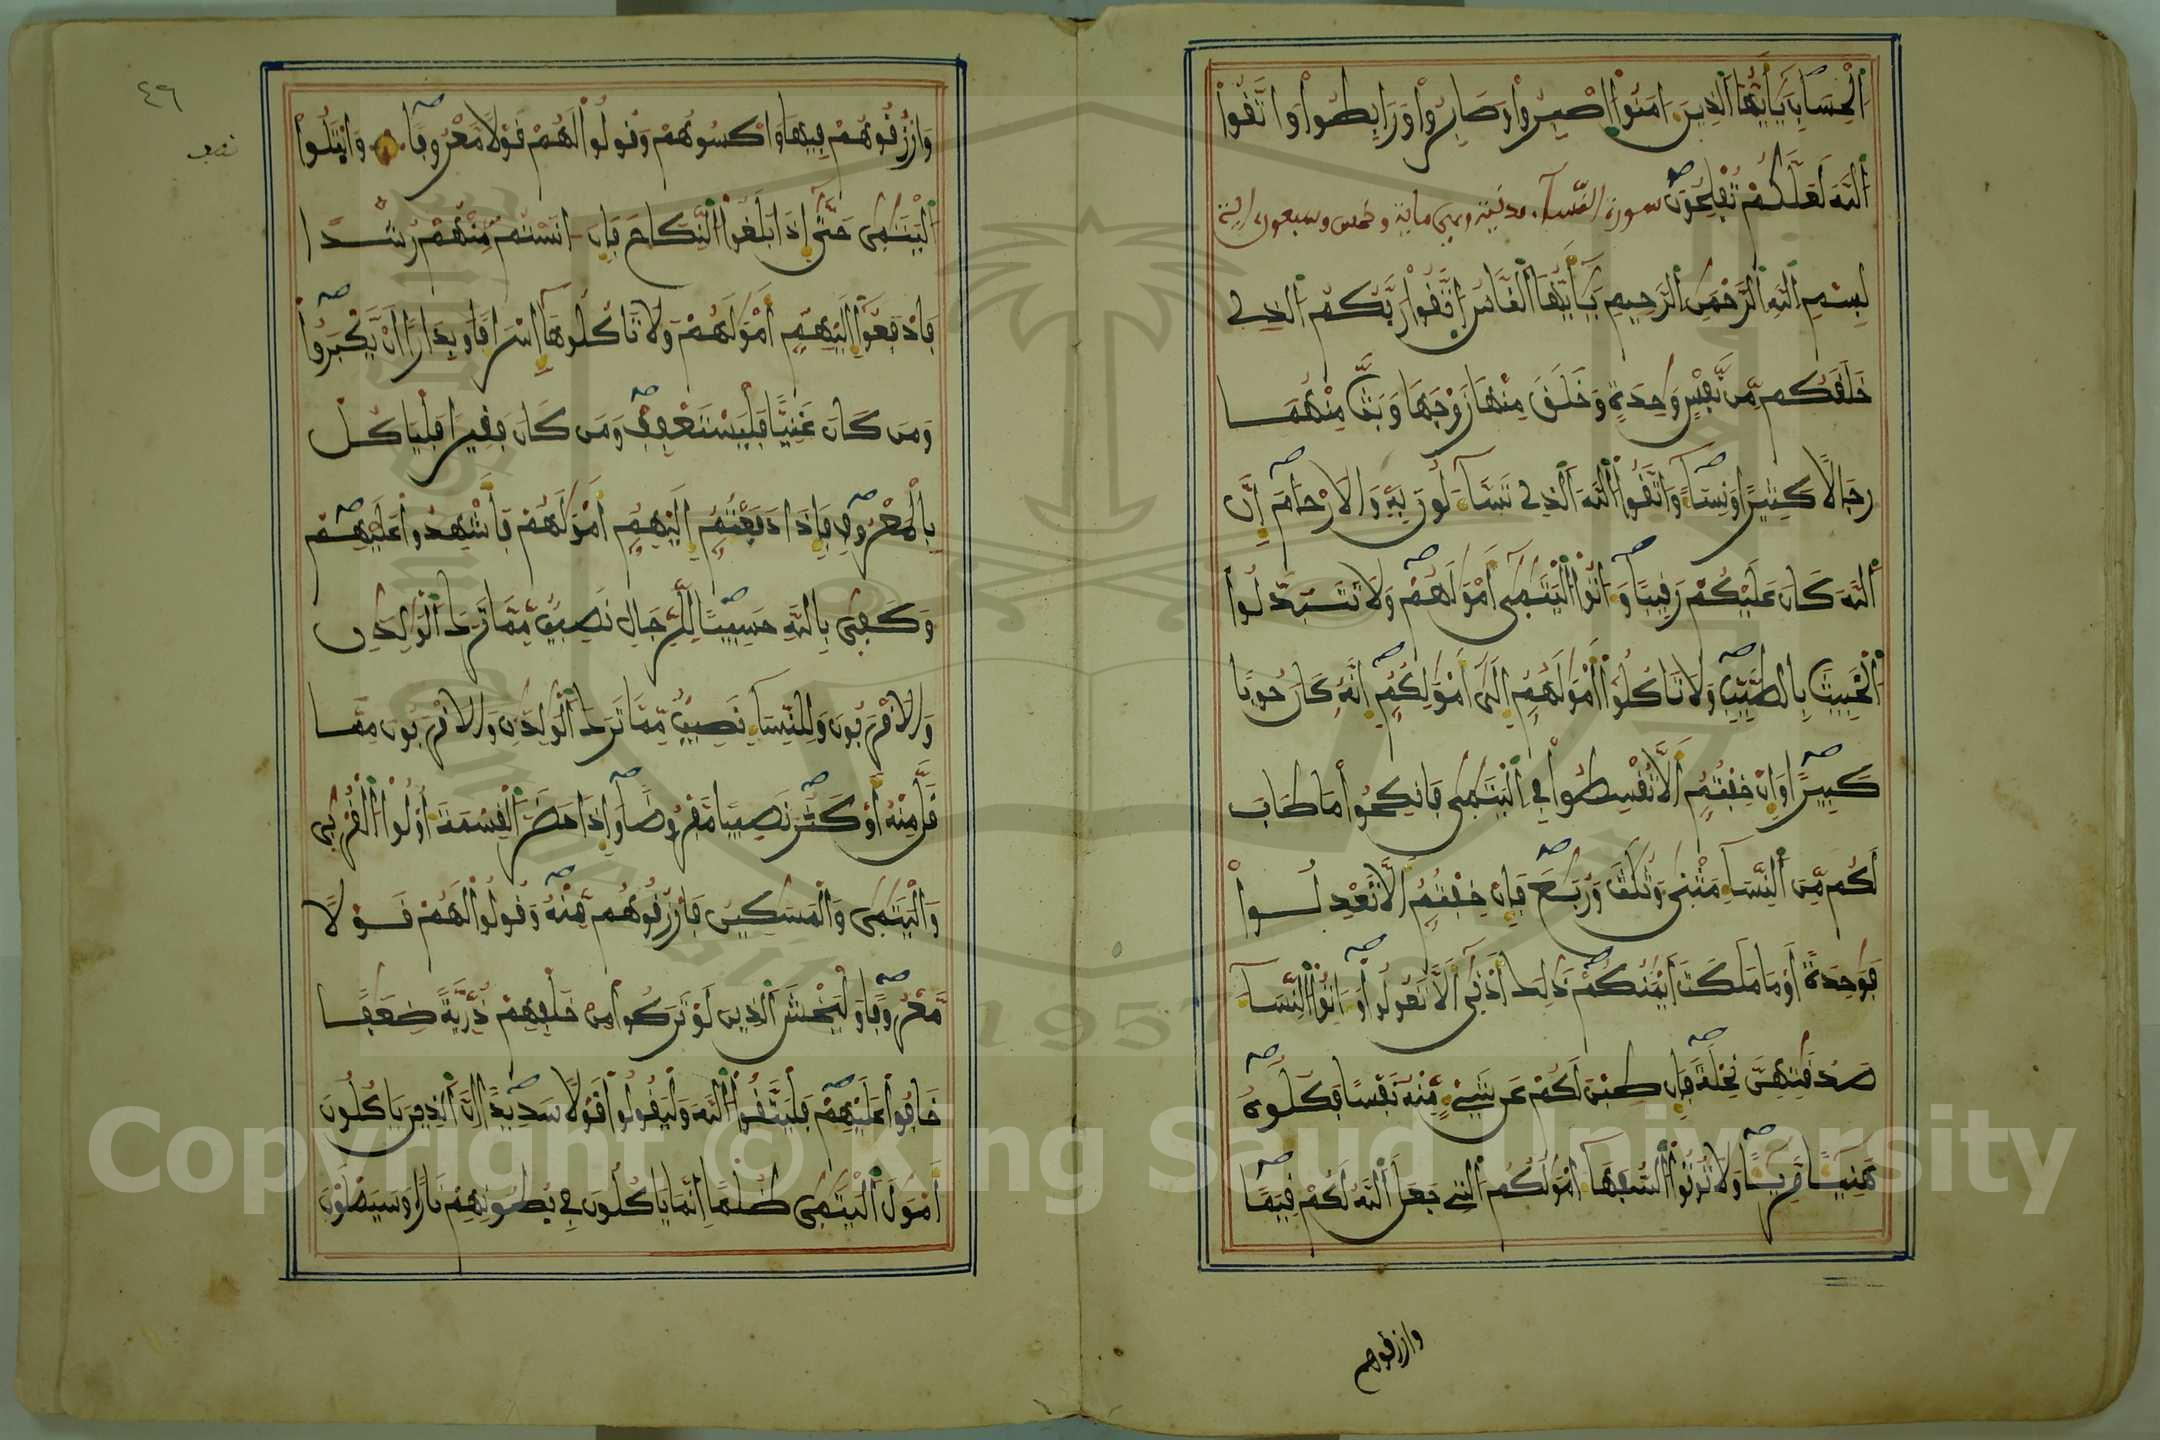 اَلْحِسَابِ يَٰأَيُّهَا اَلذِينَ ءَامَنُواْ اُصْبِرُواْ وَصَابِرُواْ وَرَابِطُواْ وَاتَّقُواْ
اَللَّهَ لَعَلَّكُمْ تُفْلِحُونَ سورة النساء مدنية وهي ماية وخمس وسبعون اية
بِسْمِ اللَّهِ الرَّحْمَٰنِ الرَّحِيمِ يَٰأَيُّهَا اَلنَّاسُ اُتَّقُواْ رَبَّكُمُ اُلذِے
خَلَقَكُم مِّن نَّفْسٍ وَٰحِدَةٍ وَخَلَقَ مِنْهَا زَوْجَهَا وَبَثَّ مِنْهُمَا
رِجَالًا كَثِيرًا وَنِسَآءً وَاتَّقُواْ اُللَّهَ اَلذِے تَسَّآءَلُونَ بِهِۦ وَالَارْحَامَ إِنَّ
اَللَّهَ كَانَ عَلَيْكُمْ رَقِيبًا وَءَاتُواْ اُلْيَتَٰمَىٰٓ أَمْوَٰلَهُمْ وَلَا تَتَبَدَّلُواْ
اُلْخَبِيثَ بِالطَّيِّبِ وَلَا تَاكُلُوٓاْ أَمْوَٰلَهُمُۥٓ إِلَىٰٓ أَمْوَٰلِكُمُۥٓ إِنَّهُۥ كَانَ حُوبًا
كَبِيرًا وَإِنْ خِفْتُمُۥٓ أَلَّا تُقْسِطُواْ فِے اِلْيَتَٰمَىٰ فَانكِحُواْ مَا طَابَ
لَكُم مِّنَ اَلنِّسَآءِ مَثْنَىٰ وَثُلَٰثَ وَرُبَٰعَ فَإِنْ خِفْتُمُۥٓ أَلَّا تَعْدِلُواْ
فَوَٰحِدَةً أَوْ مَا مَلَكَتَ اَيْمَٰنُكُمْ ذَٰلِكَ أَدْنَىٰٓ أَلَّا تَعُولُواْ وَءَاتُواْ اُلنِّسَآءَ
صَدُقَٰتِهِنَّ نِحْلَةً فَإِن طِبْنَ لَكُمْ عَن شَےْءٍ مِّنْهُ نَفْسًا فَكُلُوهُ
هَنِيٓـًٔا مَّرِيٓـًٔا وَلَا تُوتُواْ اُلسُّفَهَآءَ امْوَٰلَكُمُ اُلتِے جَعَلَ اَللَّهُ لَكُمْ قِيَمًا
وارزقوهم
٤٦
نصف
وَارْزُقُوهُمْ فِيهَا وَاكْسُوهُمْ وَقُولُواْ لَهُمْ قَوْلًا مَّعْرُوفًا وَابْتَلُواْ
اُلْيَتَٰمَىٰ حَتَّىٰٓ إِذَا بَلَغُواْ اُلنِّكَاحَ فَإِنَ ءَانَسْتُم مِّنْهُمْ رُشْدًا
فَادْفَعُوٓاْ إِلَيْهِمُۥٓ أَمْوَٰلَهُمْ وَلَا تَاكُلُوهَآ إِسْرَافًا وَبِدَارًا أَنْ يَّكْبَرُواْ
وَمَن كَانَ غَنِيًّا فَلْيَسْتَعْفِفْ وَمَن كَانَ فَقِيرًا فَلْيَاكُلْ
بِالْمَعْرُوفِ فَإِذَا دَفَعْتُمُۥٓ إِلَيْهِمُۥٓ أَمْوَٰلَهُمْ فَأَشْهِدُواْ عَلَيْهِمْ
وَكَفَىٰ بِاللَّهِ حَسِيبًا لِّلرِّجَالِ نَصِيبٌ مِّمَّا تَرَكَ اَلْوَٰلِدَٰنِ
وَالَاقْرَبُونَ وَلِلنِّسَآءِ نَصِيبٌ مِّمَّا تَرَكَ اَلْوَٰلِدَٰنِ وَالَاقْرَبُونَ مِمَّا
قَلَّ مِنْهُ أَوْ كَثُرَ نَصِيبًا مَّفْرُوضًا وَإِذَا حَضَرَ اَلْقِسْمَةَ أُوْلُواْ اُلْقُرْبَىٰ
وَالْيَتَٰمَىٰ وَالْمَسَٰكِينُ فَارْزُقُوهُم مِّنْهُ وَقُولُواْ لَهُمْ قَوْلًا
مَّعْرُوفًا وَلْيَخْشَ اَلذِينَ لَوْ تَرَكُواْ مِنْ خَلْفِهِمْ ذُرِّيَّةً ضِعَٰفًا
خَافُواْ عَلَيْهِمْ فَلْيَتَّقُواْ اُللَّهَ وَلْيَقُولُواْ قَوْلًا سَدِيدًا اِنَّ اَلذِينَ يَاكُلُونَ
أَمْوَٰلَ اَلْيَتَٰمَىٰ ظُلْمًا اِنَّمَا يَاكُلُونَ فِے بُطُونِهِمْ نَارًا وَسَيَصْلَوْنَ
Copyright © King Saud University
1957